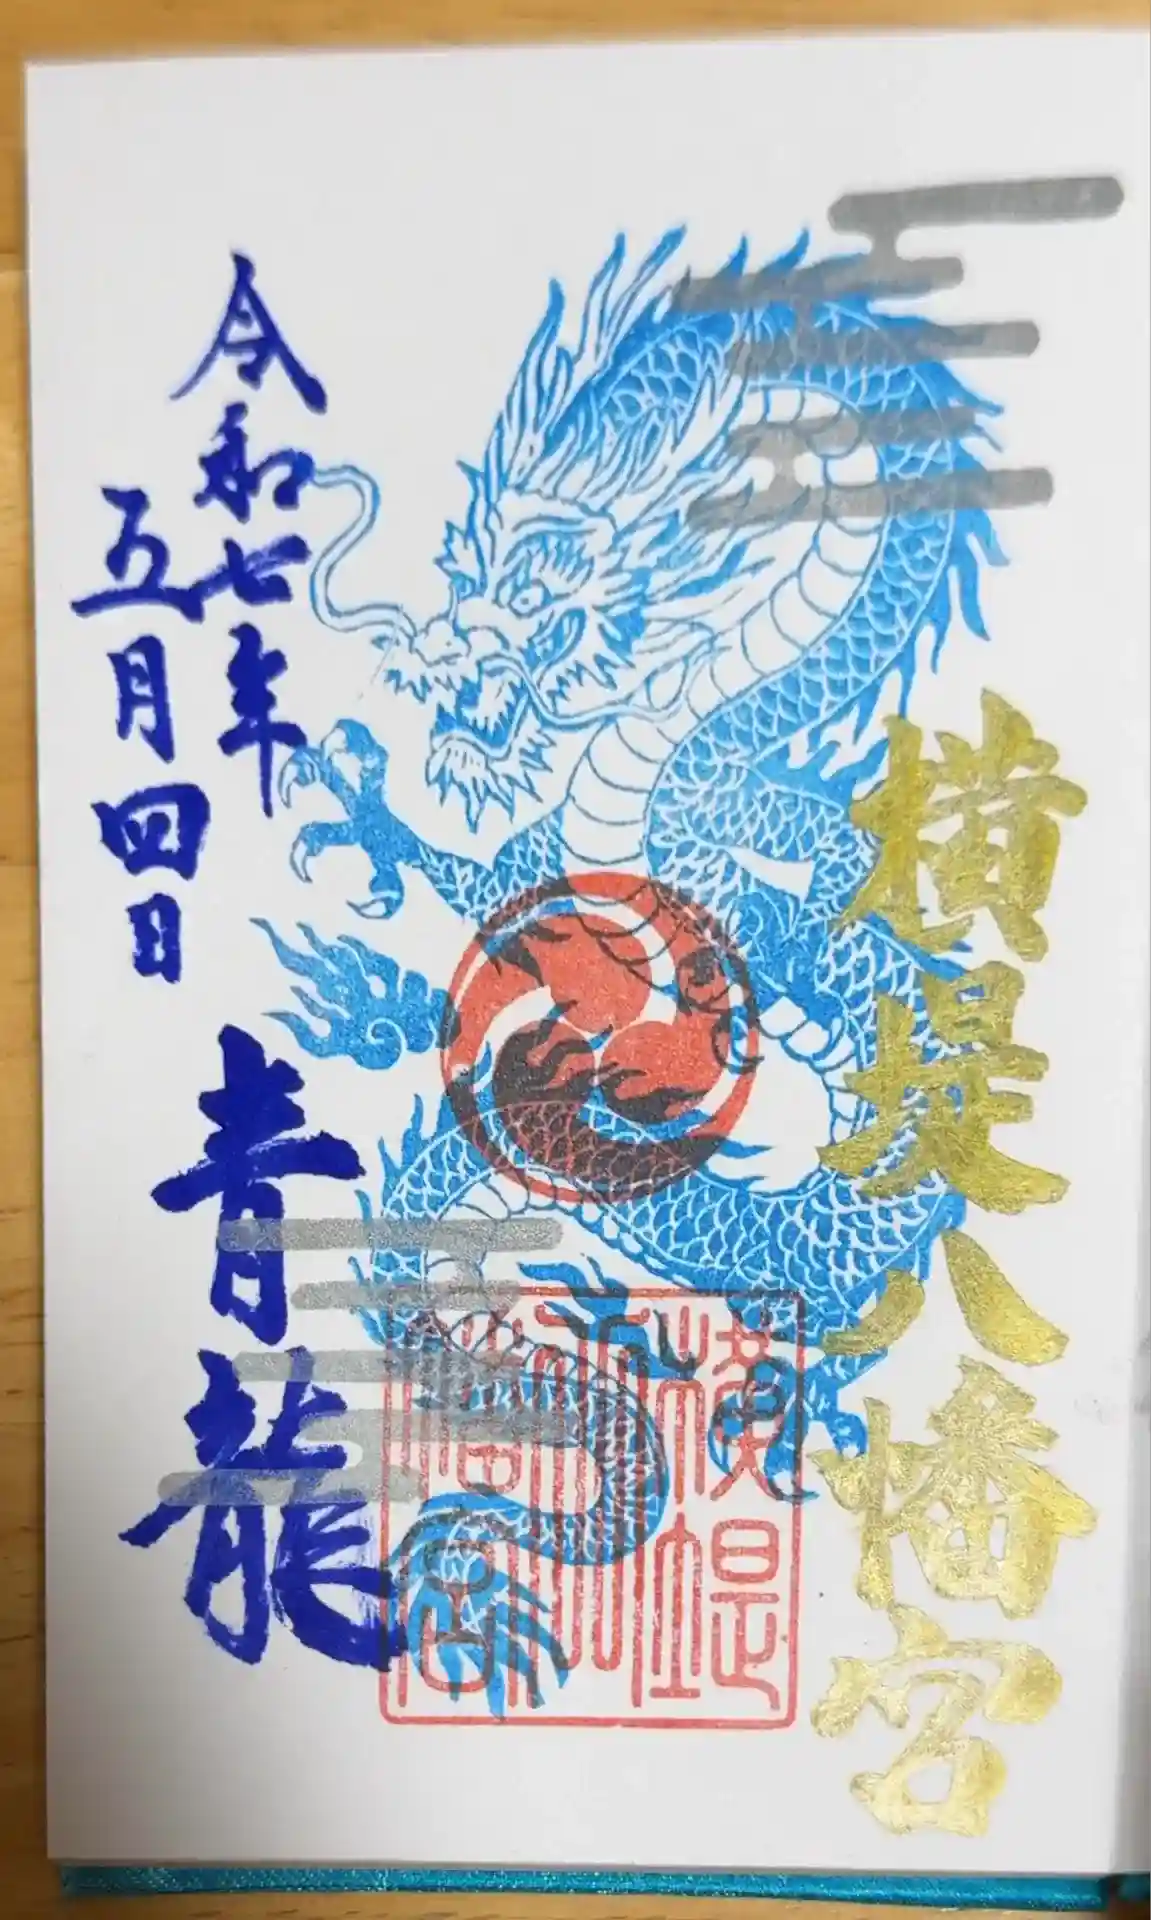 横堤八幡宮
横堤八幡宮
青龍
令和七年
五月四日